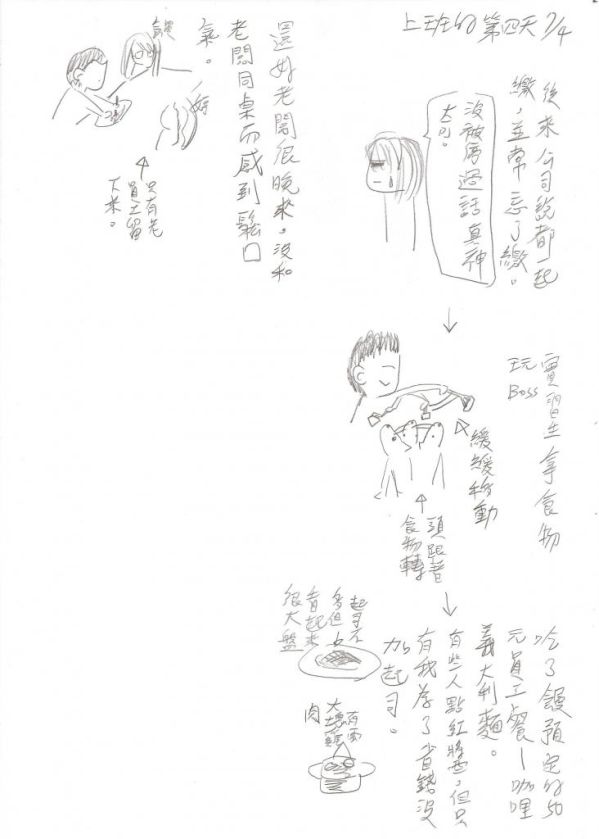 上班的第四天 7/4
後來公司說都一起
繳，並常忘了繳。
沒被馬過話真神
奇。
實習生拿食物
玩Boss
緩緩移動
頭跟著
食物轉
吃了饅預定的50
元員工餐－咖哩
義大利麵。
有些人點紅醬，但只
有我為了省錢沒
加起司。
起司不
多但
看起來
很大盤
有兩
大塊雞
肉
還好老闆很晚來，沒和
老闆同桌而感到鬆口
氣。
只有老
員工留
下來。